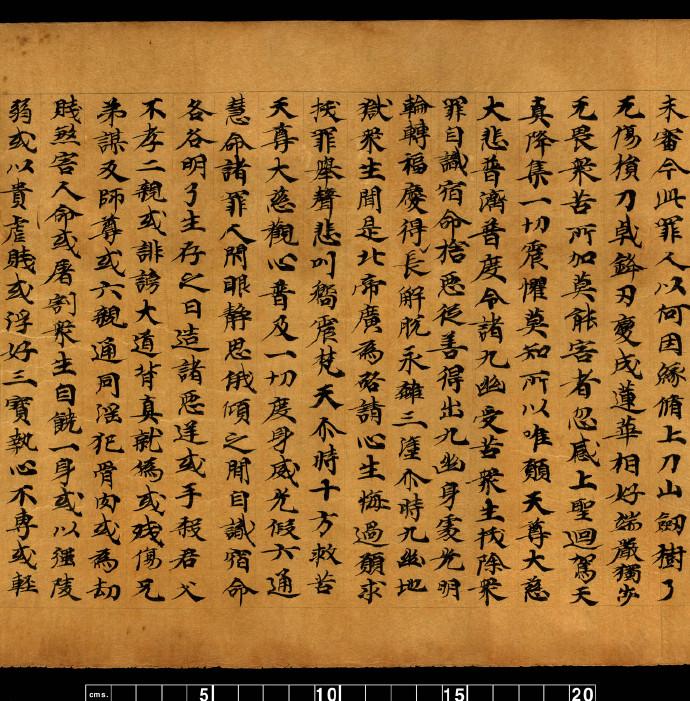 未審今此罪人以何因緣脩上刀山劔樹了
无傷損刀戟鋒刃變成蓮華相好端嚴獨步
无畏衆苦所加莫能害者忽感上聖迴駕天
真降集一切震懼莫知所以唯願天尊大慈
大悲普濟普度令諸九幽受苦衆生拔除衆
罪自識宿命捨惡從善得出九幽身處光明
輪轉福慶得長解脫永離三塗尒時九幽地
獄衆生聞是北帝廣為啓請心生悔過願求
拔罪舉聲悲叫響震梵天尒時十方救苦
天尊大慈觀心普及一切度身威光假六通
慧命諸罪人閉眼靜思俄傾之間自識宿命
各各明了生存之日造諸惡逆或手殺君父
不孝二親或誹謗大道背真就偽或殘傷兄
弟謀反師尊或六親通同淫犯骨肉或為劫
賊煞害人命或屠割衆生自饒一身或以强陵
弱或以貴虐賤或浮好三寶執心不專或輕
cms. 5 10 15 20